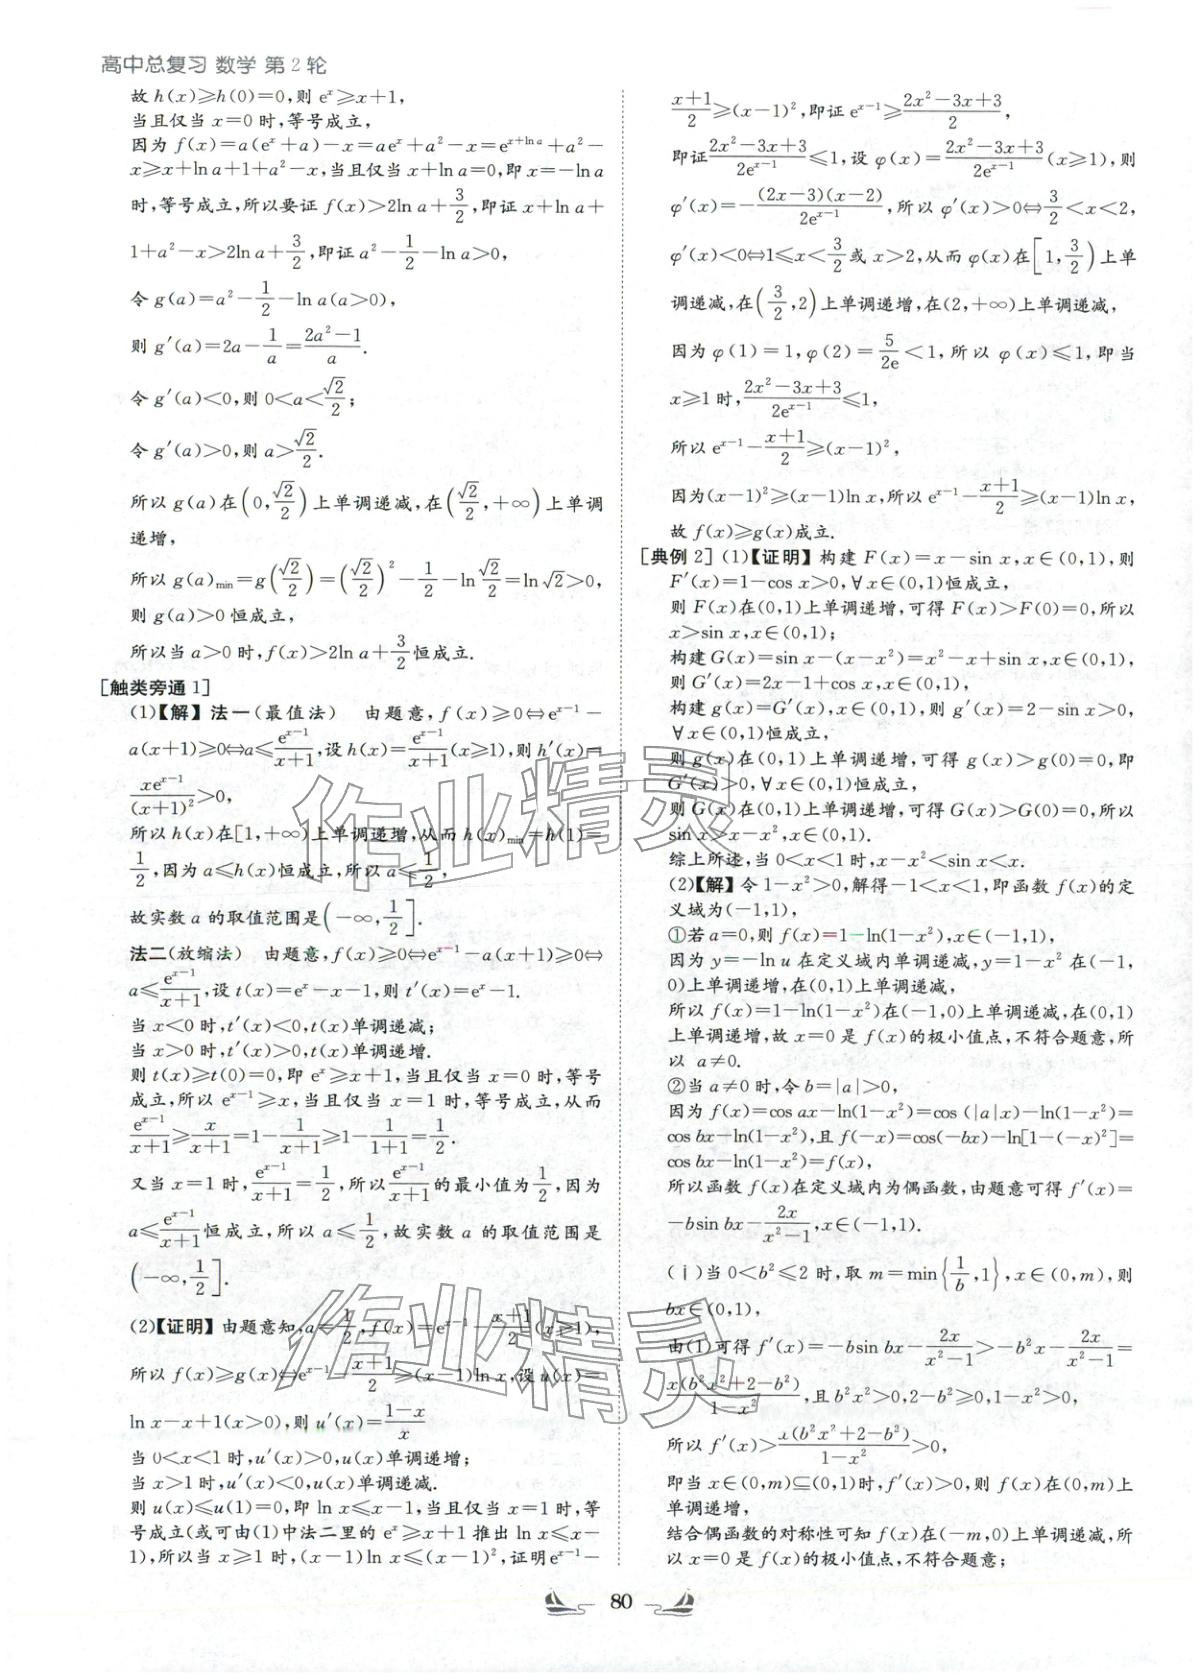 高中总复习 数学 第2轮
故h(x)≥h(0)=0,则eˣ≥x+1,
当且仅当x=0时,等号成立,
因为f(x)=a(eˣ+a)-x=aeˣ+a²-x=e^{x+ln a}+a²-
x≥x+ln a+1+a²-x,当且仅当x+ln a=0,即x=-ln a
时,等号成立,所以要证f(x)>2ln a+3/2,即证x+ln a+
1+a²-x>2ln a+3/2,即证a²-1/2-ln a>0,
令g(a)=a²-1/2-ln a(a>0),
则g′(a)=2a-1/a=(2a²-1)/a.
令g′(a)<0,则0<a<√2/2;
令g′(a)>0,则a>√2/2.
所以g(a)在(0,√2/2)上单调递减,在(√2/2,+∞)上单调
递增,
所以g(a)min=g(√2/2)=(√2/2)²-1/2-ln √2/2=ln√2>0,
则g(a)>0恒成立,
所以当a>0时,f(x)>2ln a+3/2恒成立.
[触类旁通1]
(1)【解】法一(最值法) 由题意,f(x)≥0⇔e^{x-1}-
a(x+1)≥0⇔a≤e^{x-1}/(x+1),设h(x)=e^{x-1}/(x+1)(x≥1),则h′(x)=
xe^{x-1}/(x+1)²>0,
所以h(x)在[1,+∞)上单调递增,从而h(x)min=h(1)=
1/2,因为a≤h(x)恒成立,所以a≤1/2,
故实数a的取值范围是(-∞,1/2].
法二(放缩法) 由题意,f(x)≥0⇔e^{x-1}-a(x+1)≥0⇔
a≤e^{x-1}/(x+1),设t(x)=eˣ-x-1,则t′(x)=eˣ-1.
当x<0时,t′(x)<0,t(x)单调递减;
当x>0时,t′(x)>0,t(x)单调递增.
则t(x)≥t(0)=0,即eˣ≥x+1,当且仅当x=0时,等号
成立,所以e^{x-1}≥x,当且仅当x=1时,等号成立,从而
e^{x-1}/(x+1)≥x/(x+1)=1-1/(x+1)≥1-1/(1+1)=1/2.
又当x=1时,e^{x-1}/(x+1)=1/2,所以e^{x-1}/(x+1)的最小值为1/2,因为
a≤e^{x-1}/(x+1)恒成立,所以a≤1/2,故实数a的取值范围是
(-∞,1/2].
(2)【证明】由题意知,a=1/2,f(x)=e^{x-1}-(x+1)/2(x≥1),
所以f(x)≥g(x)⇔e^{x-1}-(x+1)/2≥(x-1)ln x,设u(x)=
ln x-x+1(x>0),则u′(x)=(1-x)/x
当0<x<1时,u′(x)>0,u(x)单调递增;
当x>1时,u′(x)<0,u(x)单调递减.
则u(x)≤u(1)=0,即ln x≤x-1,当且仅当x=1时,等
号成立(或可由(1)中法二里的eˣ≥x+1推出ln x≤x-
1),所以当x≥1时,(x-1)ln x≤(x-1)²,证明e^{x-1}-
(x+1)/2≥(x-1)²,即证e^{x-1}≥(2x²-3x+3)/2,
即证(2x²-3x+3)/(2e^{x-1})≤1,设φ(x)=(2x²-3x+3)/(2e^{x-1})(x≥1),则
φ′(x)=-(2x-3)(x-2)/(2e^{x-1}),所以φ′(x)>0⇔3/2<x<2,
φ′(x)<0⇔1≤x<3/2或x>2,从而φ(x)在[1,3/2)上单
调递减,在(3/2,2)上单调递增,在(2,+∞)上单调递减,
因为φ(1)=1,φ(2)=5/(2e)<1,所以φ(x)≤1,即当
x≥1时,(2x²-3x+3)/(2e^{x-1})≤1,
所以e^{x-1}-(x+1)/2≥(x-1)²,
因为(x-1)²≥(x-1)ln x,所以e^{x-1}-(x+1)/2≥(x-1)ln x,
故f(x)≥g(x)成立.
[典例2](1)【证明】构建F(x)=x-sin x,x∈(0,1),则
F′(x)=1-cos x>0,∀x∈(0,1)恒成立,
则F(x)在(0,1)上单调递增,可得F(x)>F(0)=0,所以
x>sin x,x∈(0,1);
构建G(x)=sin x-(x-x²)=x²-x+sin x,x∈(0,1),
则G′(x)=2x-1+cos x,x∈(0,1),
构建g(x)=G′(x),x∈(0,1),则g′(x)=2-sin x>0,
∀x∈(0,1)恒成立,
则g(x)在(0,1)上单调递增,可得g(x)>g(0)=0,即
G′(x)>0,∀x∈(0,1)恒成立,
则G(x)在(0,1)上单调递增,可得G(x)>G(0)=0,所以
sin x>x-x²,x∈(0,1).
综上所述,当0<x<1时,x-x²<sin x<x.
(2)【解】令1-x²>0,解得-1<x<1,即函数f(x)的定
义域为(-1,1),
①若a=0,则f(x)=1-ln(1-x²),x∈(-1,1),
因为y=-ln u在定义域内单调递减,y=1-x²在(-1,
0)上单调递增,在(0,1)上单调递减,
所以f(x)=1-ln(1-x²)在(-1,0)上单调递减,在(0,1)
上单调递增,故x=0是f(x)的极小值点,不符合题意,所
以 a≠0.
②当a≠0时,令b=|a|>0,
因为f(x)=cos ax-ln(1-x²)=cos (|a|x)-ln(1-x²)=
cos bx-ln(1-x²),且f(-x)=cos(-bx)-ln[1-(-x)²]=
cos bx-ln(1-x²)=f(x),
所以函数f(x)在定义域内为偶函数,由题意可得f′(x)=
-bsin bx-2x/(x²-1),x∈(-1,1).
(ⅰ)当0<b²≤2时,取m=min{1/b,1},x∈(0,m),则
bx∈(0,1),
由(1)可得f′(x)=-bsin bx-2x/(x²-1)>-b²x-2x/(x²-1)=
x(b²x²+2-b²)/(1-x²),且b²x²>0,2-b²≥0,1-x²>0,
所以f′(x)>x(b²x²+2-b²)/(1-x²)>0,
即当x∈(0,m)⊆(0,1)时,f′(x)>0,则f(x)在(0,m)上
单调递增,
结合偶函数的对称性可知f(x)在(-m,0)上单调递减,所
以x=0是f(x)的极小值点,不符合题意;
80
作业精灵
作业精灵